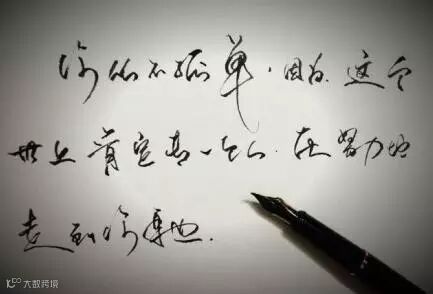 你从不孤单，因为这个
世上肯定有一个人，在努力地
走到你身边.
大数跨境